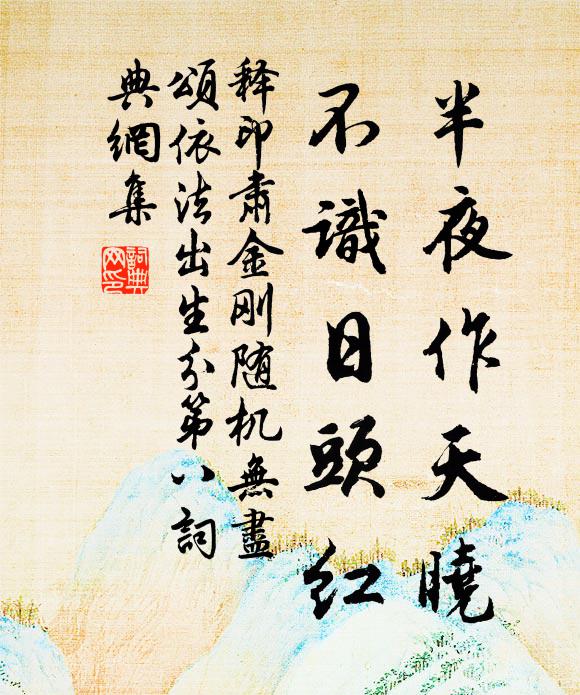 半夜作天曉
不識日頭紅
释印肃金刚随机無盡
頌依法出生分第八詞
典網集
詞典
网印